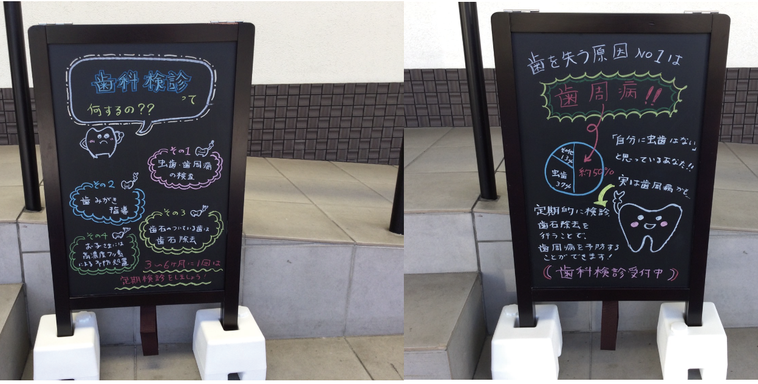 歯科検診
って
何するの??
その1
虫歯・歯周病
の検査
その2
歯みがき
指導
その3
歯石のついている歯は
歯石除去
その4
お子さまには
高濃度フッ素
による予防処置
3〜6ヶ月に1回は
定期検診をしましょう!
歯を失う原因No1は
歯周病!!
約50%
虫歯
37%
その他
13%
「自分に虫歯はない」
と思っているあなた!!
実は歯周病かも
定期的に検診
歯石除去を
行うことで、
歯周病を予防する
ことができます!
(歯科検診受付中)